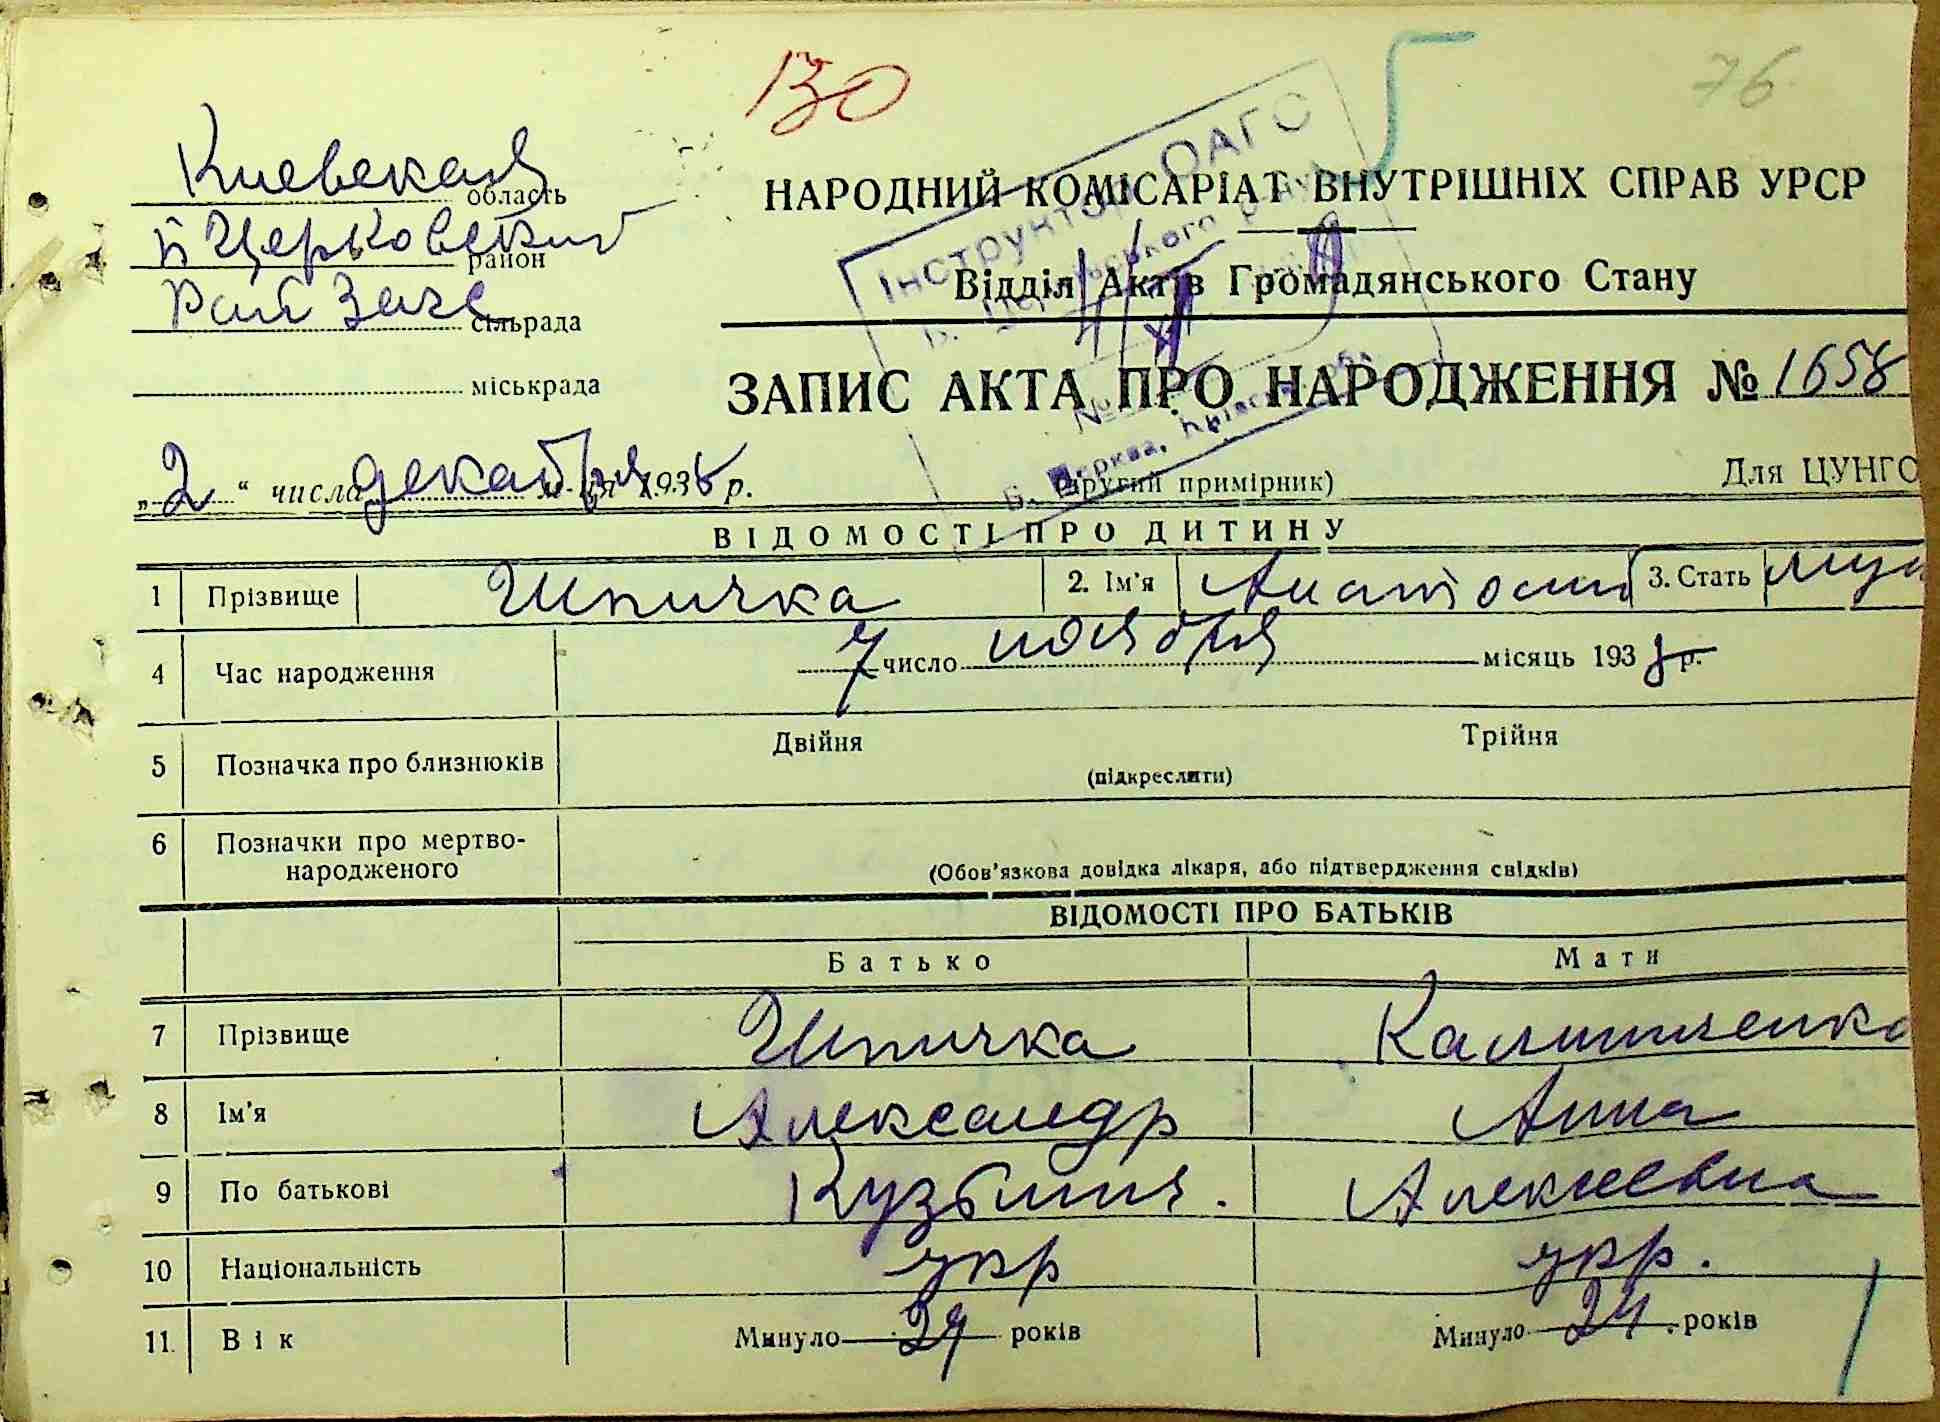 130
76
Киевская область
Б Церковский район
Рай Загс сільрада
міськрада
НАРОДНИЙ КОМІСАРІАТ ВНУТРІШНІХ СПРАВ УРСР
Відділ Актів Громадянського Стану
Інструктор ОАГС
ЗАПИС АКТА ПРО НАРОДЖЕННЯ № 1658
„2“ числа декабря м-ця 193 р.
(другий примірник)
Для ЦУНГО
ВІДОМОСТІ ПРО ДИТИНУ
1 Прізвище Шпичка 2. Ім'я Анатолий 3. Стать муж
4 Час народження 7 число ноября місяць 193 р.
5 Позначка про близнюків Двійня Трійня
(підкреслити)
6 Позначки про мертво-
народженого
(Обов'язкова довідка лікаря, або підтвердження свідків)
ВІДОМОСТІ ПРО БАТЬКІВ
Батько Мати
7 Прізвище Шпичка Калитиенко
8 Ім'я Александр Анна
9 По батькові Кузьмич. Алексеевна
10 Національність укр укр.
11. Вік Минуло 24 років Минуло 24 років